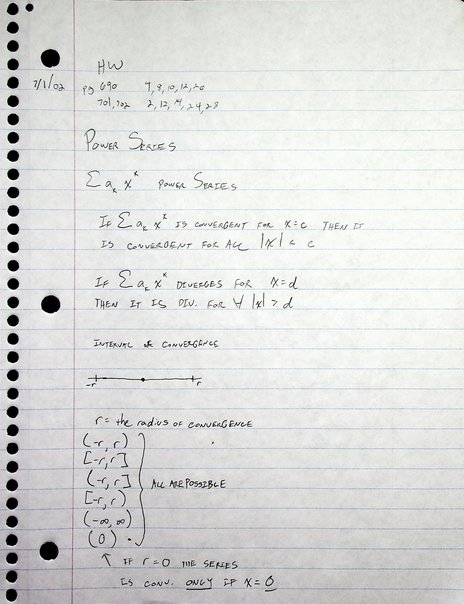 HW
7/1/02 pg 690 7, 8, 10, 12, 20
701, 702 2, 12, 14, 24, 28
POWER SERIES
Σ aₖ xᵏ POWER SERIES
IF Σ aₖ xᵏ IS CONVERGENT FOR x=c THEN IT
IS CONVERGENT FOR ALL |x| < c
IF Σ aₖ xᵏ DIVERGES FOR x=d
THEN IT IS DIV. FOR ∀ |x| > d
INTERVAL OF CONVERGENCE
-r r
r = the radius OF CONVERGENCE
(-r, r)
[-r, r]
(-r, r] ALL ARE POSSIBLE
[-r, r)
(-∞, ∞)
(0)
↑ IF r = 0 THE SERIES
IS CONV. ONLY IF x = 0